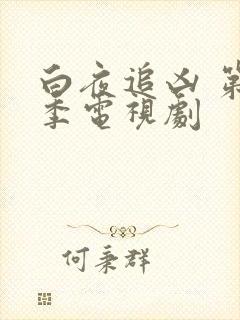 白夜追凶 第
季電視劇
何秉群